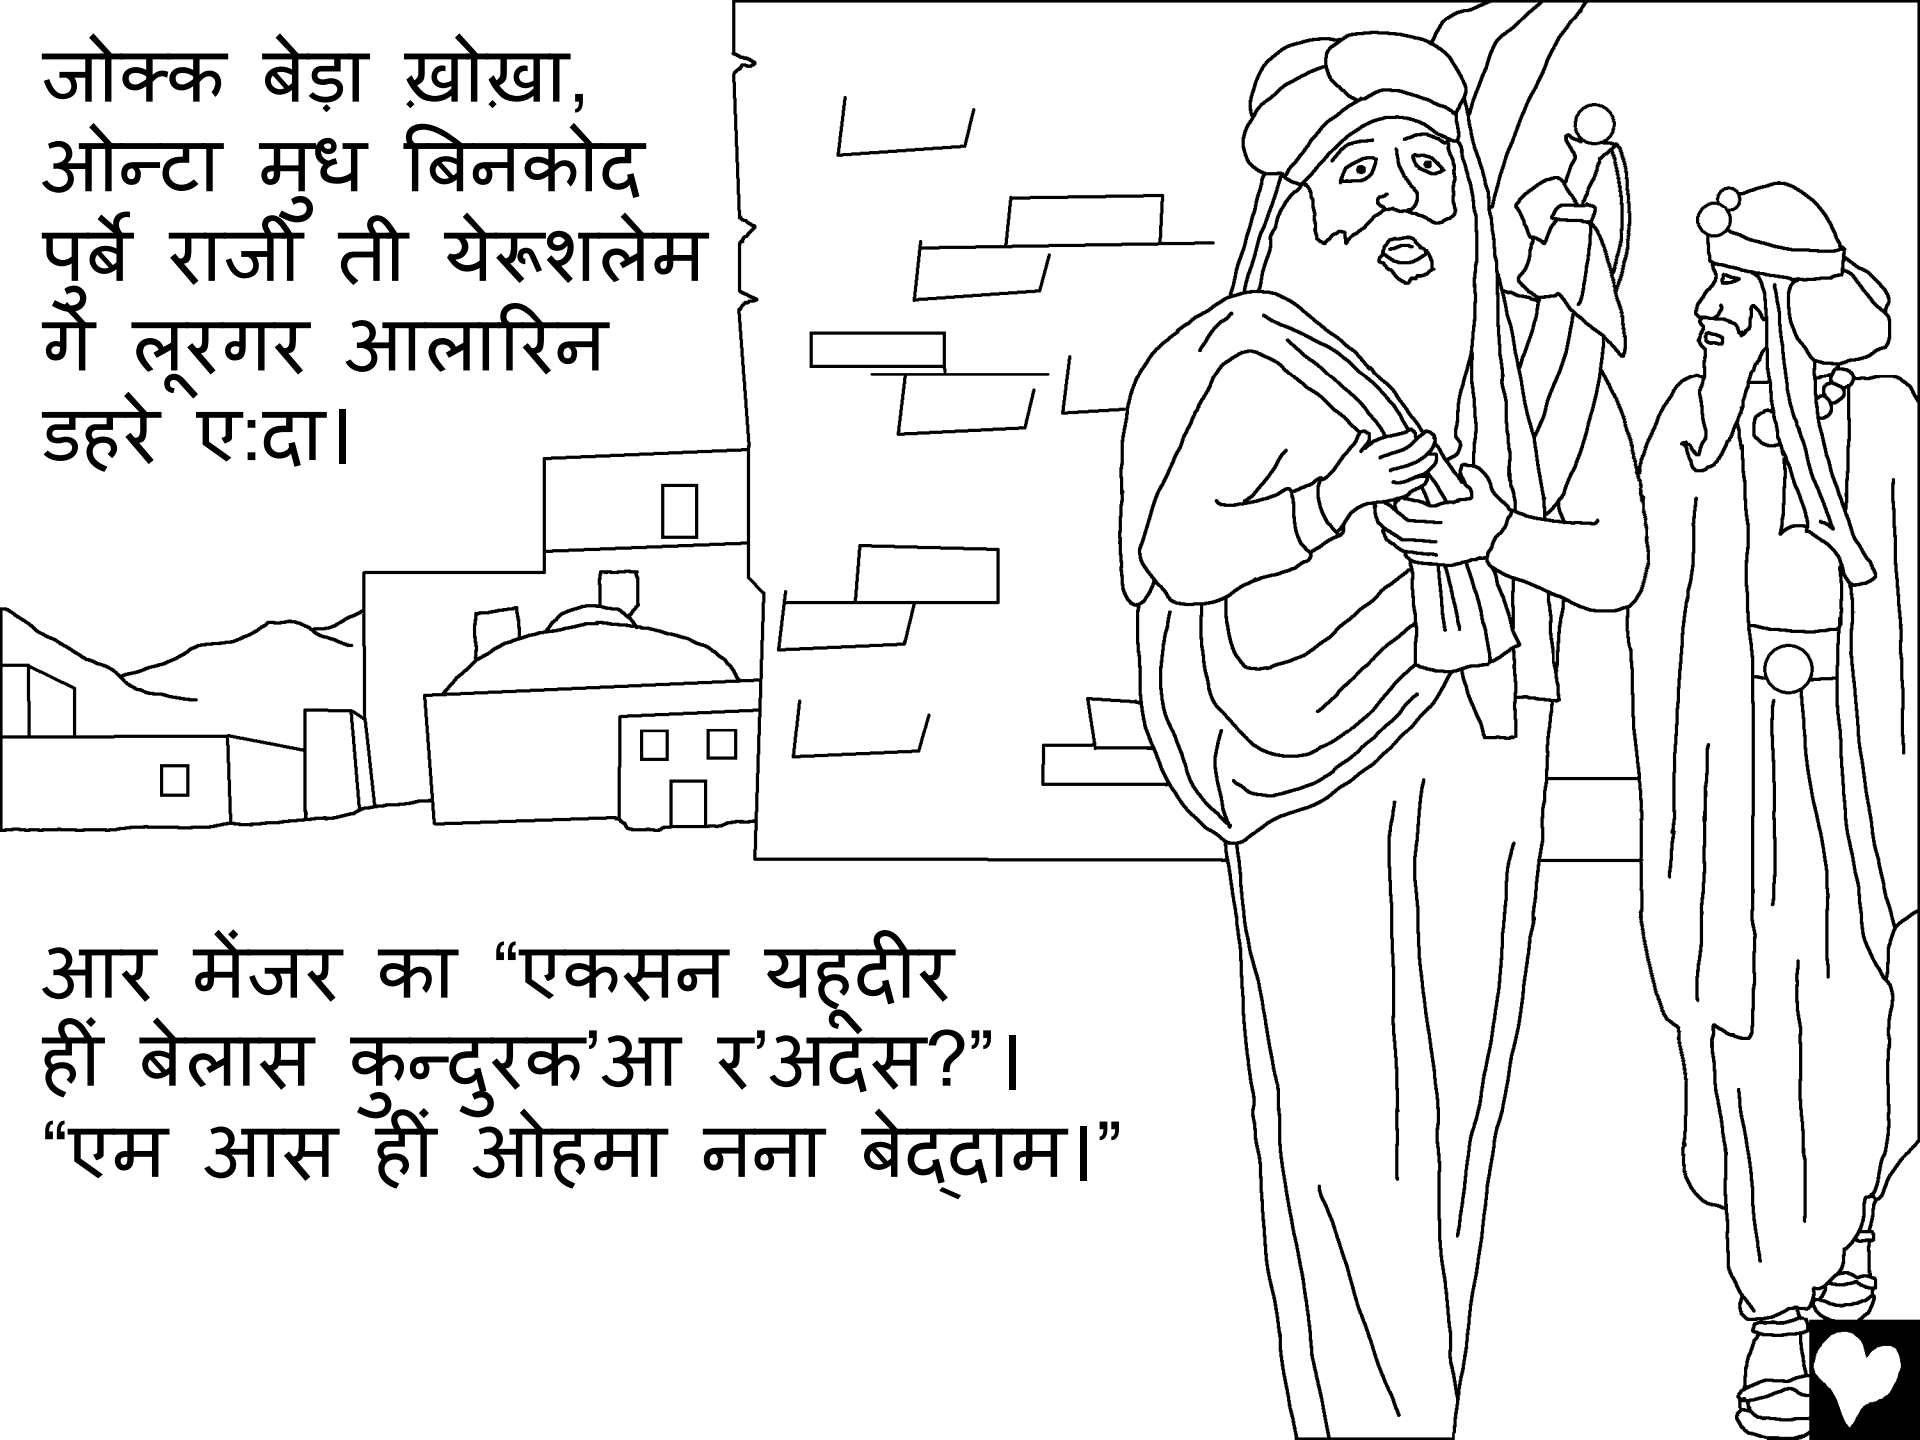 जोक्क बेड़ा ख़ोख़ा,
ओन्टा मुध बिनकोद
पुर्बे राजी ती येरूशलेम
गे लूरगर आलारिन
डहरे ए:दा।
आर मेंजर का “एकसन यहूदीर
हीं बेलास कुन्दुरक’आ र’अदस?”।
“एम आस हीं ओहमा नना बेद्दाम।”